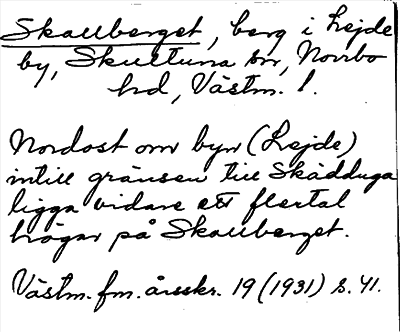 Skallberget, berg i Lejde
by, Skultuna sn, Norrbo
hd, Västm. l.
Nordost om byn (Lejde)
intill gränsen till Skådduga
ligga vidare ett flertal
högar på Skallberget.
Västm. fm. årsskr. 19 (1931) s. 41.